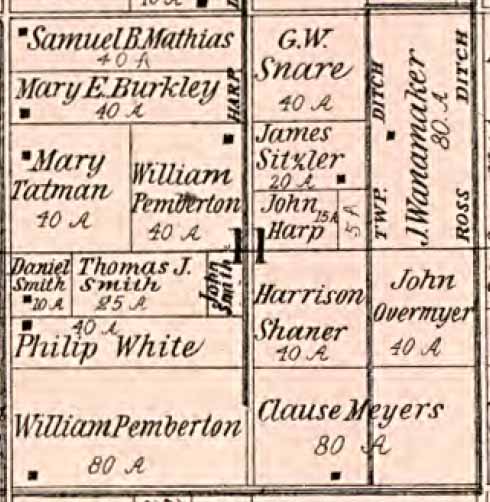 Samuel B. Mathias
40 A
Mary E. Burkley
40 A
HARP
Mary
Tatman
40 A
William
Pemberton
40 A
G.W.
Snare
40 A
James
Sitzler
20 A
John
Harp
15 A
5 A
TWP.
DITCH
J. Wanamaker
80 A
ROSS
DITCH
11
Daniel
Smith
10 A
Thomas J.
Smith
25 A
John
Smith
40 A
Philip White
William Pemberton
80 A
Harrison
Shaner
40 A
John
Overmyer
40 A
Clause Meyers
80 A